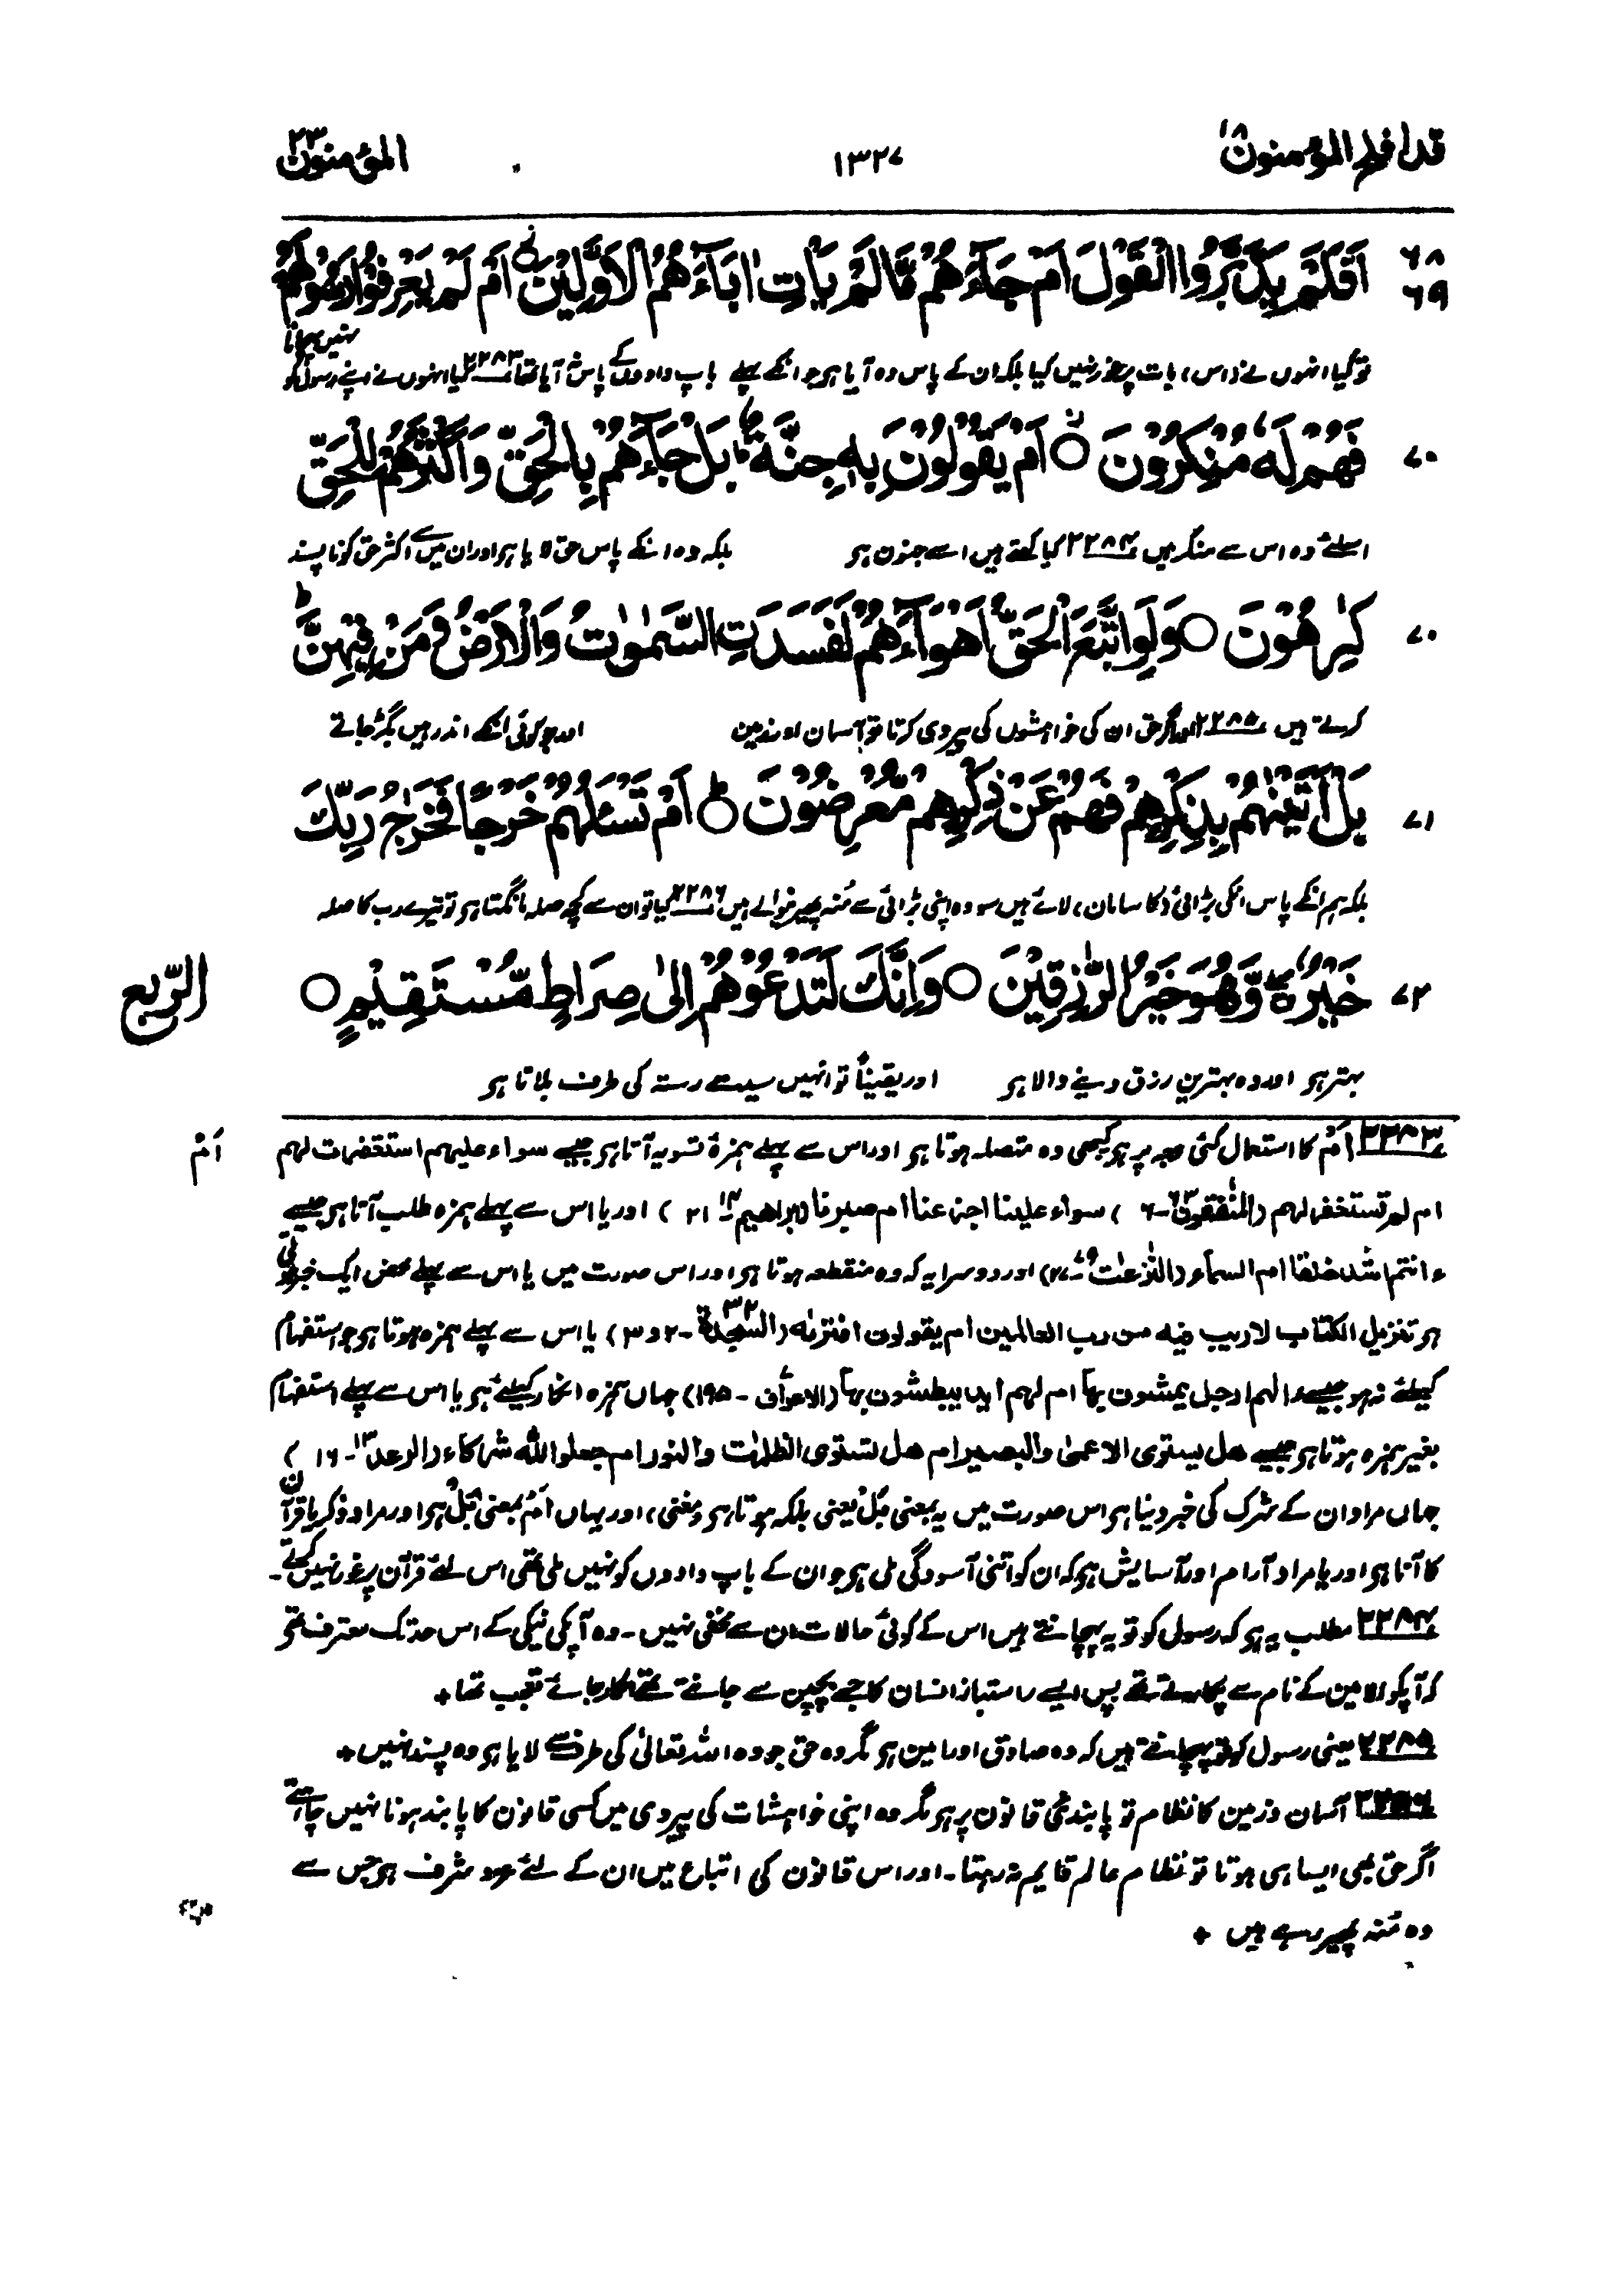 قد افلح المؤمنون ۱۸
۱۳۲۷
المؤمنون ۲۳
۶۸
۶۹
اَفَلَمْ يَدَّبَّرُوا الْقَوْلَ اَمْ جَآءَهُمْ مَّا لَمْ يَاْتِ اٰبَآءَهُمُ الْاَوَّلِيْنَ اَمْ لَمْ يَعْرِفُوْا رَسُوْلَهُمْ
تو کیا انہوں نے (اس) بات پر غور نہیں کیا بلکہ ان کے پاس وہ آیا ہی جو انکے پہلے باپ دادوں کے پاس نہ آیا تھا ۲۲۸۳ کیا انہوں نے اپنے رسول کو نہیں پہچانا
۷۰
فَهُمْ لَهٗ مُنْكِرُوْنَ ○ اَمْ يَقُوْلُوْنَ بِهٖ جِنَّةٌ ؕ بَلْ جَآءَهُمْ بِالْحَقِّ وَاَكْثَرُهُمْ لِلْحَقِّ
اسلئے وہ اس سے منکر ہیں ۲۲۸۴ کیا کہتے ہیں اسے جنون ہی بلکہ وہ انکے پاس حق لایا ہی اور ان میں سے اکثر حق کو ناپسند
۷۰
كٰرِهُوْنَ ○ وَلَوِ اتَّبَعَ الْحَقُّ اَهْوَآءَهُمْ لَفَسَدَتِ السَّمٰوٰتُ وَالْاَرْضُ وَمَنْ فِيْهِنَّ ؕ
کرتے ہیں ۲۲۸۵ اور اگر حق ان کی خواہشوں کی پیروی کرتا تو آسمان اور زمین اور جو کوئی انکے اندر ہیں بگڑ جاتے
۷۱
بَلْ اَتَيْنٰهُمْ بِذِكْرِهِمْ فَهُمْ عَنْ ذِكْرِهِمْ مُّعْرِضُوْنَ ○ اَمْ تَسْـَٔلُهُمْ خَرْجًا فَخَرَاجُ رَبِّكَ
بلکہ ہم انکے پاس انکی بڑائی (کا سامان) لائے ہیں سو وہ اپنی بڑائی سے مُنہ پھیرنیوالے ہیں ۲۲۸۶ کیا تو ان سے کچھ صلہ مانگتا ہی تو تیرے رب کا صلہ
۷۲
خَيْرٌ وَّهُوَ خَيْرُ الرّٰزِقِيْنَ ○ وَاِنَّكَ لَتَدْعُوْهُمْ اِلٰى صِرَاطٍ مُّسْتَقِيْمٍ ○
الرّبع
بہتر ہی اور وہ بہترین رزق دینے والا ہی اور یقیناً تو انہیں سیدھے رستہ کی طرف بلاتا ہی
اَمْ
۲۲۸۳ اَمْ کا استعمال کئی وجہ پر ہی کبھی وہ متصلہ ہوتا ہی اور اس سے پہلے ہمزۂ تسویہ آتا ہی جیسے سواء علیہم استغفرت لہم
ام لم تستغفر لہم (المنٰفقون ۶۳-۶) سواء علینا اجزعنا ام صبرنا (ابراھیم ۱۴-۲۱) اور یا اس سے پہلے ہمزہ طلب آتا ہی جیسے
ءانتم اشد خلقا ام السمآء (النٰزعٰت ۷۹-۲۷) اور دوسرا یہ کہ وہ منقطعہ ہوتا ہی اور اس صورت میں یا اس سے پہلے محض ایک خبر ہوتی
ہی تنزیل الکتاب لاریب فیہ من رب العالمین ام یقولون افترٰہ (السجدۃ ۳۲-۲ و ۳) یا اس سے پہلے ہمزہ ہوتا ہی جو استفہام
کیلئے نہ ہو جیسے الہم ارجل یمشون بہا ام لہم اید یبطشون بہا (الاعراف-۱۹۵) جہاں ہمزہ انکار کیلئے ہی یا اس سے پہلے استفہام
بغیر ہمزہ ہوتا ہی جیسے ھل یستوی الاعمیٰ والبصیر ام ھل تستوی الظلمٰت والنور ام جعلوا للّٰہ شرکاء (الرعد ۱۳-۱۶)
جہاں مراد ان کے شرک کی خبر دینا ہی اس صورت میں یہ بمعنی بَلْ یعنی بلکہ ہوتا ہی (مغنی) اور یہاں اَمْ بمعنی بَلْ ہی اور مراد ذکر یا قرآن
کا آنا ہی اور یا مراد آرام اور آسایش ہی کہ ان کو اتنی آسودگی ملی ہی جو ان کے باپ دادوں کو نہیں ملی تھی اس لئے قرآن پر غور نہیں کرتے۔
۲۲۸۴ مطلب یہ ہی کہ رسول کو تو یہ پہچانتے ہیں اس کے کوئی حالات ان سے مخفی نہیں۔ وہ آپکی نیکی کے اس حد تک معترف تھے
کہ آپکو الامین کے نام سے پکارتے تھے پس ایسے راستباز انسان کا جسے بچپن سے جانتے تھے انکار جائے تعجب تھا+
۲۲۸۵ یعنی رسول کو تو پہچانتے ہیں کہ وہ صادق اور امین ہی مگر وہ حق جو وہ اللہ تعالیٰ کی طرف سے لایا ہی وہ پسند نہیں+
۲۲۸۶ آسمان و زمین کا نظام تو پابندیٔ قانون پر ہی مگر وہ اپنی خواہشات کی پیروی میں کسی قانون کا پابند ہونا نہیں چاہتے
اگر حق بھی ایسا ہی ہوتا تو نظام عالم قایم نہ رہتا۔ اور اس قانون کی اتباع میں ان کے لئے شرف ہی جس سے
وہ مُنہ پھیر رہے ہیں +